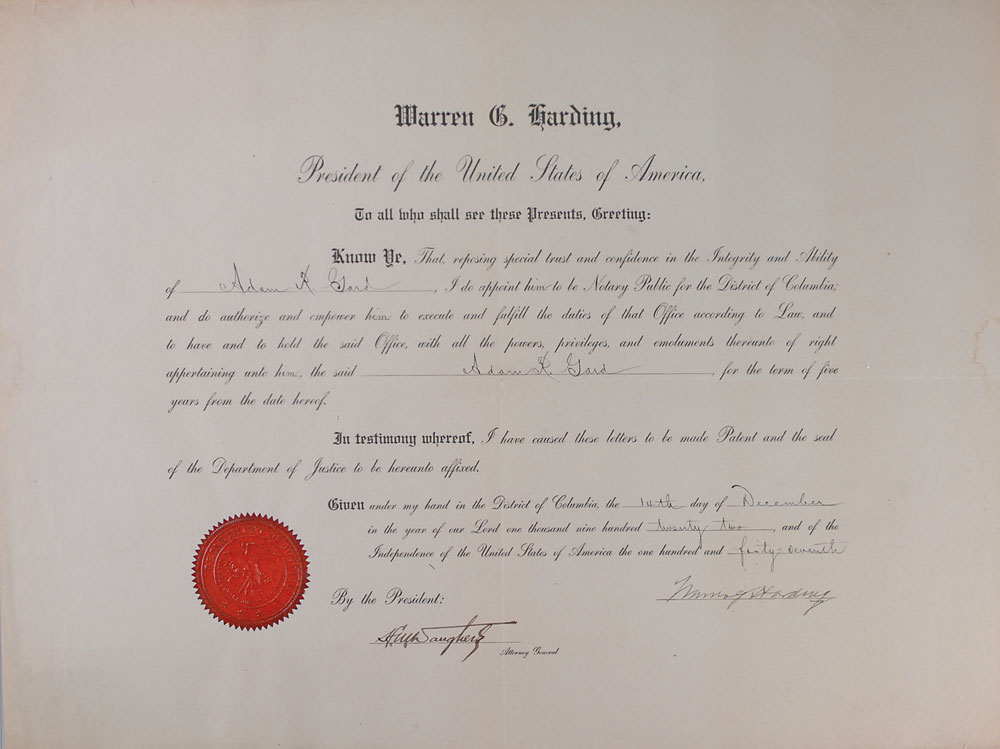 Warren G. Harding,
President of the United States of America,
To all who shall see these Presents, Greeting:
Know Ye, That, reposing special trust and confidence in the Integrity and Ability
of Adam K. Gard, I do appoint him to be Notary Public for the District of Columbia;
and do authorize and empower him to execute and fulfill the duties of that Office according to Law, and
to have and to hold the said Office, with all the powers, privileges, and emoluments thereunto of right
appertaining unto him, the said Adam K. Gard, for the term of five
years from the date hereof.
In testimony whereof, I have caused these letters to be made Patent and the seal
of the Department of Justice to be hereunto affixed.
Given under my hand in the District of Columbia, the 14th day of December
in the year of our Lord one thousand nine hundred twenty two, and of the
Independence of the United States of America the one hundred and forty-seventh
By the President:
Warren G Harding
H M Daugherty
Attorney General